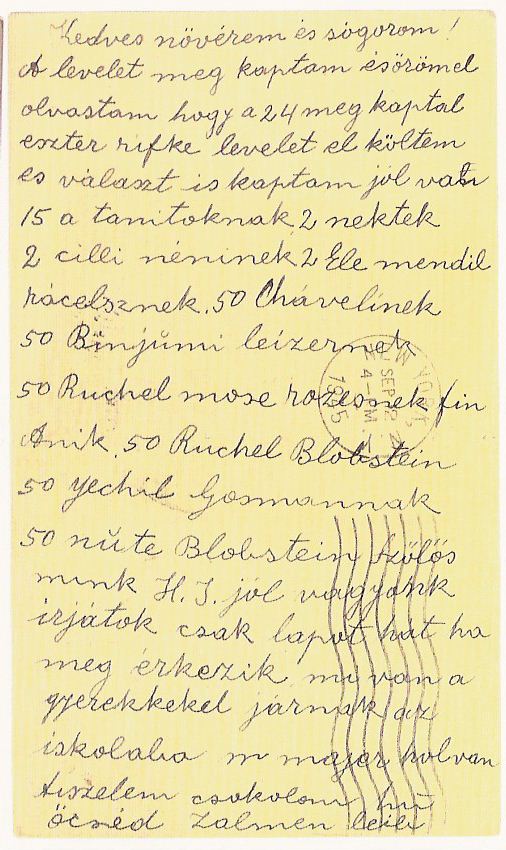 Kedves növérem és sógorom!
A levelet meg kaptam ésörömel
olvastam hogy a 24 meg kaptal
eszter rifke levelet el költem
és választ is kaptam jól van
15 a tanitoknak, 2 nektek
2 cilli néninek 2 Ele mendil
rácelsznek, 50 Chávelínek
50 Binjŭmi leízernek
50 Ruchel mose rozesnek fin
Anik, 50 Ruchel Blobstein
50 Yechil Gosmannak
50 nŭte Blobstein Szőlős
mink H. J. jól vagyunk
irjátok csak lapot hát ha
meg érkezik mi van a
gyerekkekel járnak az
iskolaba m major hol van
tiszelem csokolom hű
öcséd Zalmen leib
YORK
SEP 12
4-PM
1935